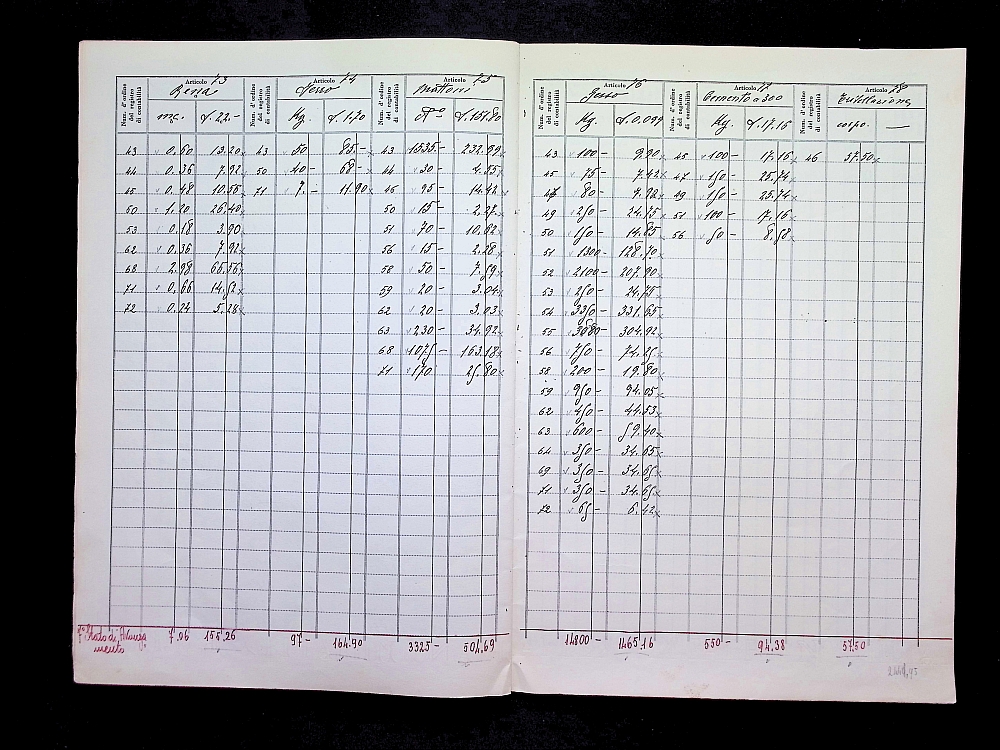 Articolo 73 Articolo 74 Articolo 75
Num. d'ordine del registro di contabilità Num. d'ordine del registro di contabilità Num. d'ordine del registro di contabilità
Ferro Mattoni
mc. £. 22.- Kg. £. 1.70 N° £. 151.80
43 0.60 13.20 43 50 85.- 43 1535.- 232.99
44 0.36 7.92 50 40- 68- 44 30- 4.55
45 0.48 10.56 71 7.- 11.90 46 95- 14.42
50 1.20 26.40 50 15- 2.28
53 0.18 3.90 51 70- 10.62
62 0.36 7.92 56 15- 2.28
68 2.98 65.56 58 50- 7.59
71 0.66 14.52 59 20- 3.04
72 0.24 5.28 62 20- 3.03
63 230- 34.92
68 1075- 163.18
71 170 25.80
7.06 155.26 97- 164.90 3325- 504.69
Articolo 76 Articolo 77 Articolo 78
Num. d'ordine del registro di contabilità Num. d'ordine del registro di contabilità Num. d'ordine del registro di contabilità
Gesso Cemento a 300
Kg. £. 0.099 Kg. £. 17.16 corpo. —
43 100- 9.90 45 100- 17.16 46 57.50
45 75- 7.42 47 150- 25.74
47 80- 7.92 49 150- 25.74
49 250- 24.75 51 100- 17.16
50 150- 14.85 56 50- 8.58
51 1300- 128.70
52 2100- 207.90
53 250- 24.75
54 3350- 331.65
55 3080- 304.92
56 750- 74.25
58 200- 19.80
59 950- 94.05
62 450- 44.53
63 600- 59.40
64 350- 34.65
69 350- 34.65
71 350- 34.65
72 65- 6.42
14800- 1465.16 550- 94.38 57.50